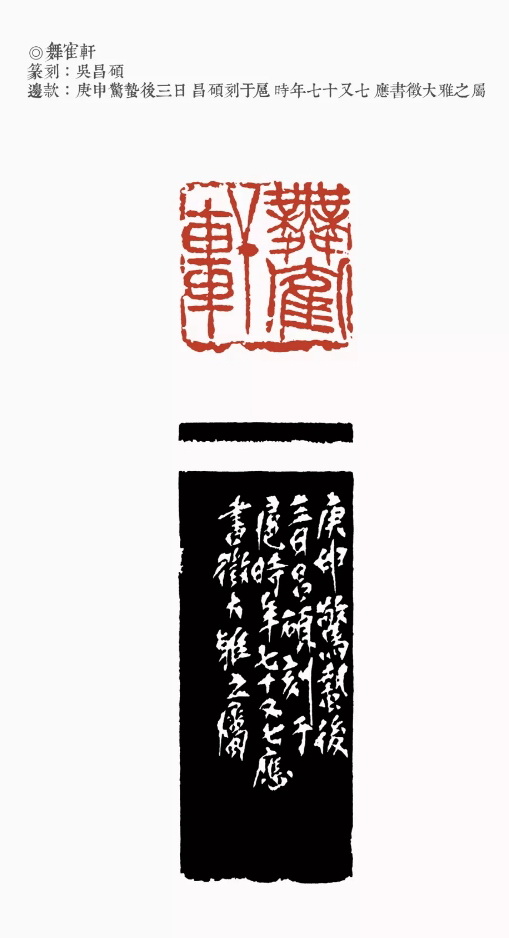 ◎舞寉軒
篆刻：吳昌碩
邊款：庚申驚蟄後三日 昌碩刻于扈 時年七十又七 應書徵大雅之屬
舞寉
軒
庚申驚蟄後
三日昌碩刻于
扈時年七十又七應
書徵大雅之屬